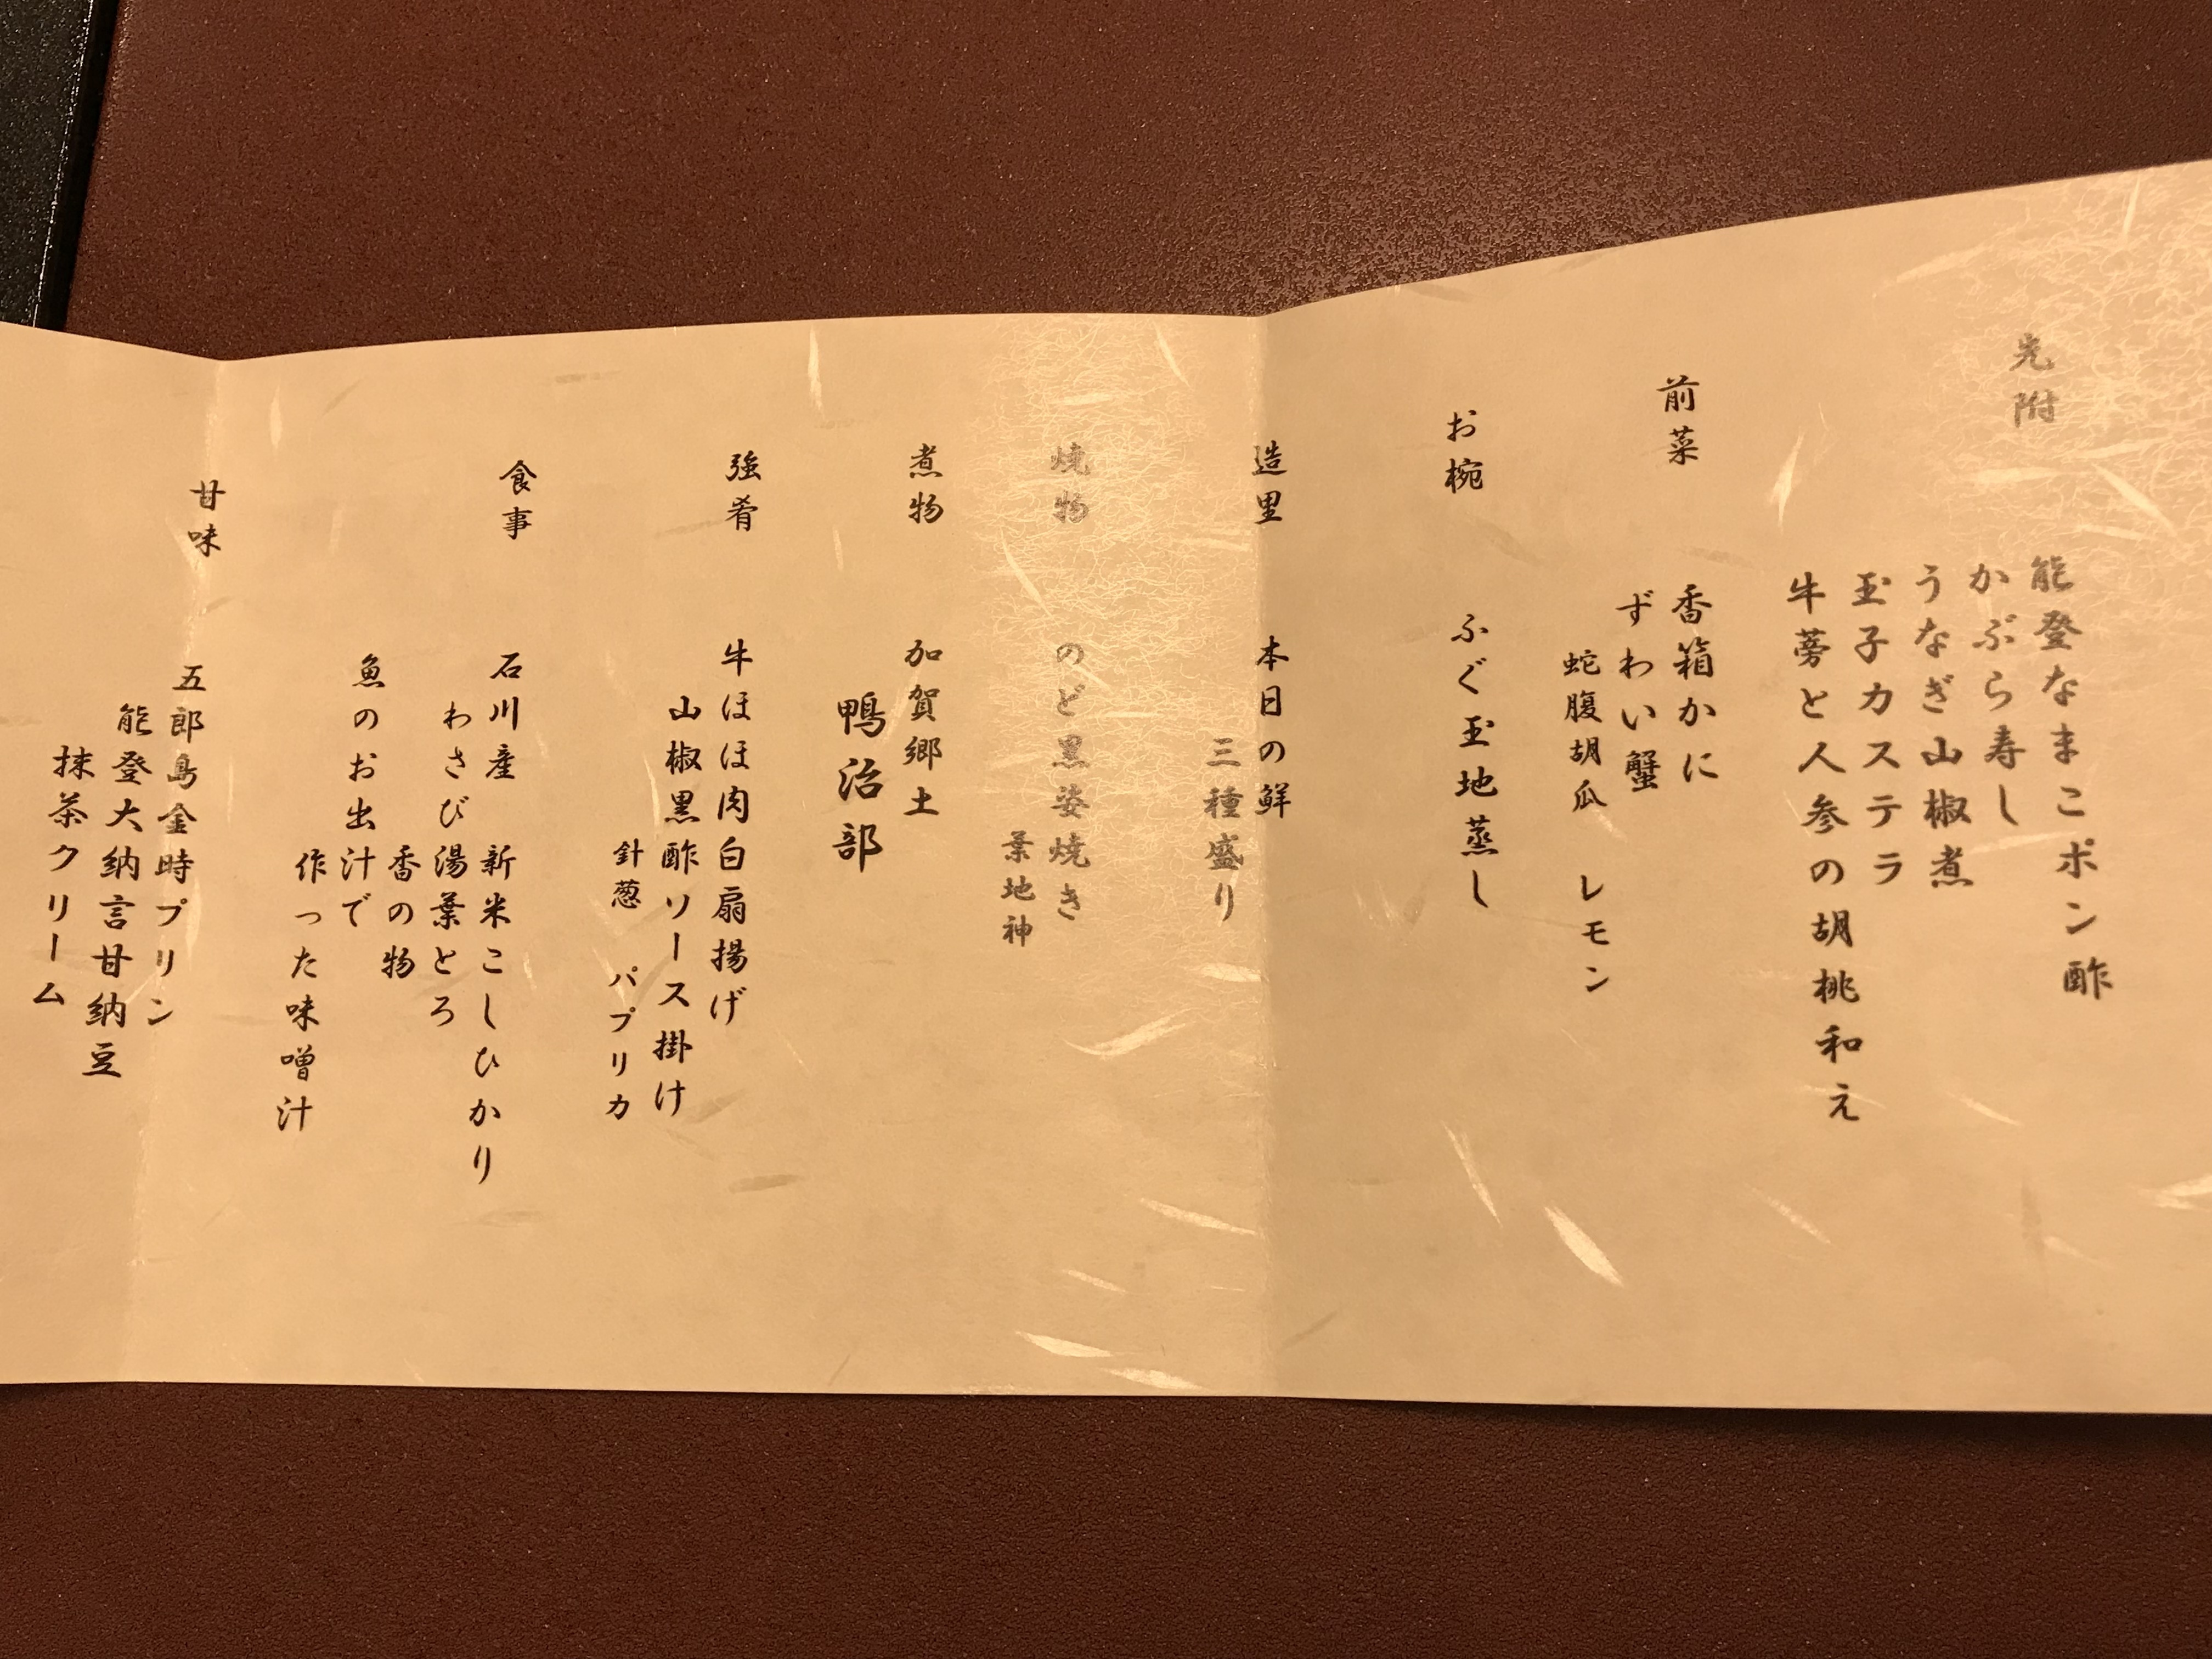 先附
能登なまこポン酢
かぶら寿し
うなぎ山椒煮
玉子カステラ
牛蒡と人参の胡桃和え
前菜
香箱かに
ずわい蟹
蛇腹胡瓜 レモン
お椀
ふぐ玉地蒸し
造里
本日の鮮
三種盛り
焼物
のど黒姿焼き
葉地神
煮物
加賀郷土
鴨治部
強肴
牛ほほ肉白扇揚げ
山椒黒酢ソース掛け
針葱 パプリカ
食事
石川産 新米こしひかり
わさび湯葉とろ
香の物
魚のお出汁で
作った味噌汁
甘味
五郎島金時プリン
能登大納言甘納豆
抹茶クリーム